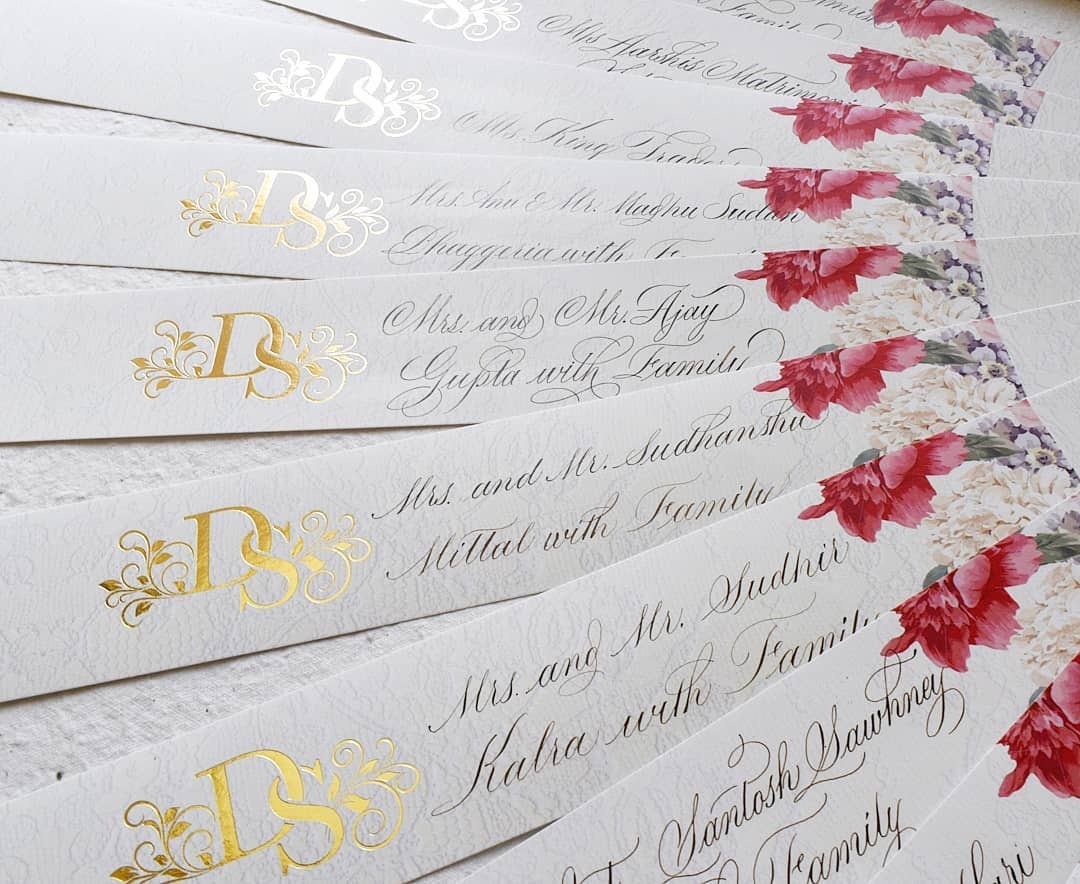 Family
DS
Mrs Harshis Matrimoni
DS
Mrs. King Trader
DS
Mrs. Anu & Mr. Maghu Sudan
Dhaggeria with F
DS
Mrs. and Mr. Ajay
Gupta with Family
DS
Mrs. and Mr. Sudhanshu
Mittal with Family
DS
Mrs. and Mr. Sudhir
Kalra with Family
DS
Santosh Sawhney
Family